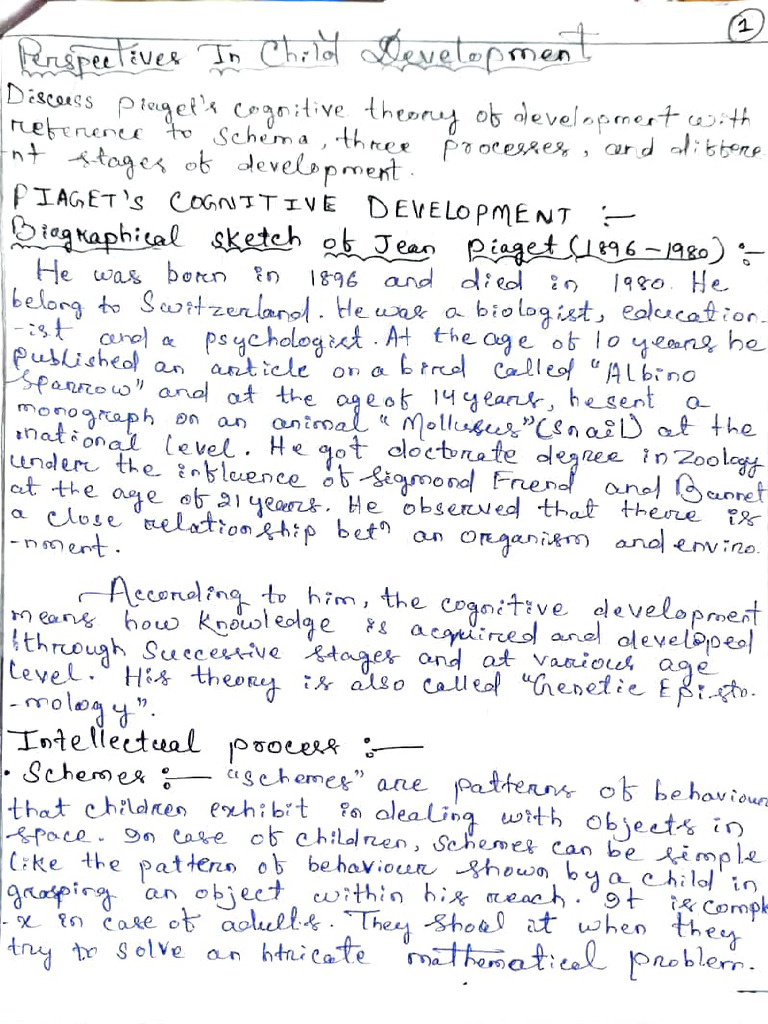 1
Perspectives In Child Development
Discuss Piaget's cognitive theory of development with
reference to schema, three processes, and differe
-nt stages of development.
PIAGET'S COGNITIVE DEVELOPMENT :-
Biographical sketch of Jean Piaget (1896-1980) :-
He was born in 1896 and died in 1980. He
belong to Switzerland. He was a biologist, education-
-ist and a psychologist. At the age of 10 years he
published an article on a bird called "Albino
Sparrow" and at the age of 14 years, he sent a
monograph on an animal "Molluscus" (Snail) at the
national level. He got doctorate degree in Zoology
under the influence of Sigmond Friend and Bannet
at the age of 21 years. He observed that there is
a close relationship betn an organism and enviro-
-nment.
According to him, the cognitive development
means how knowledge is acquired and developed
through Successive stages and at various age
level. His theory is also called "Genetic Episto-
-mology".
Intellectual process :-
• Schemes :- "schemes" are patterns of behaviour
that children exhibit in dealing with objects in
space. In case of children, schemes can be simple
like the pattern of behaviour shown by a child in
grasping an object within his reach. It is comple
-x in case of adults. They shoal it when they
try to solve an intricate mathematical problem.